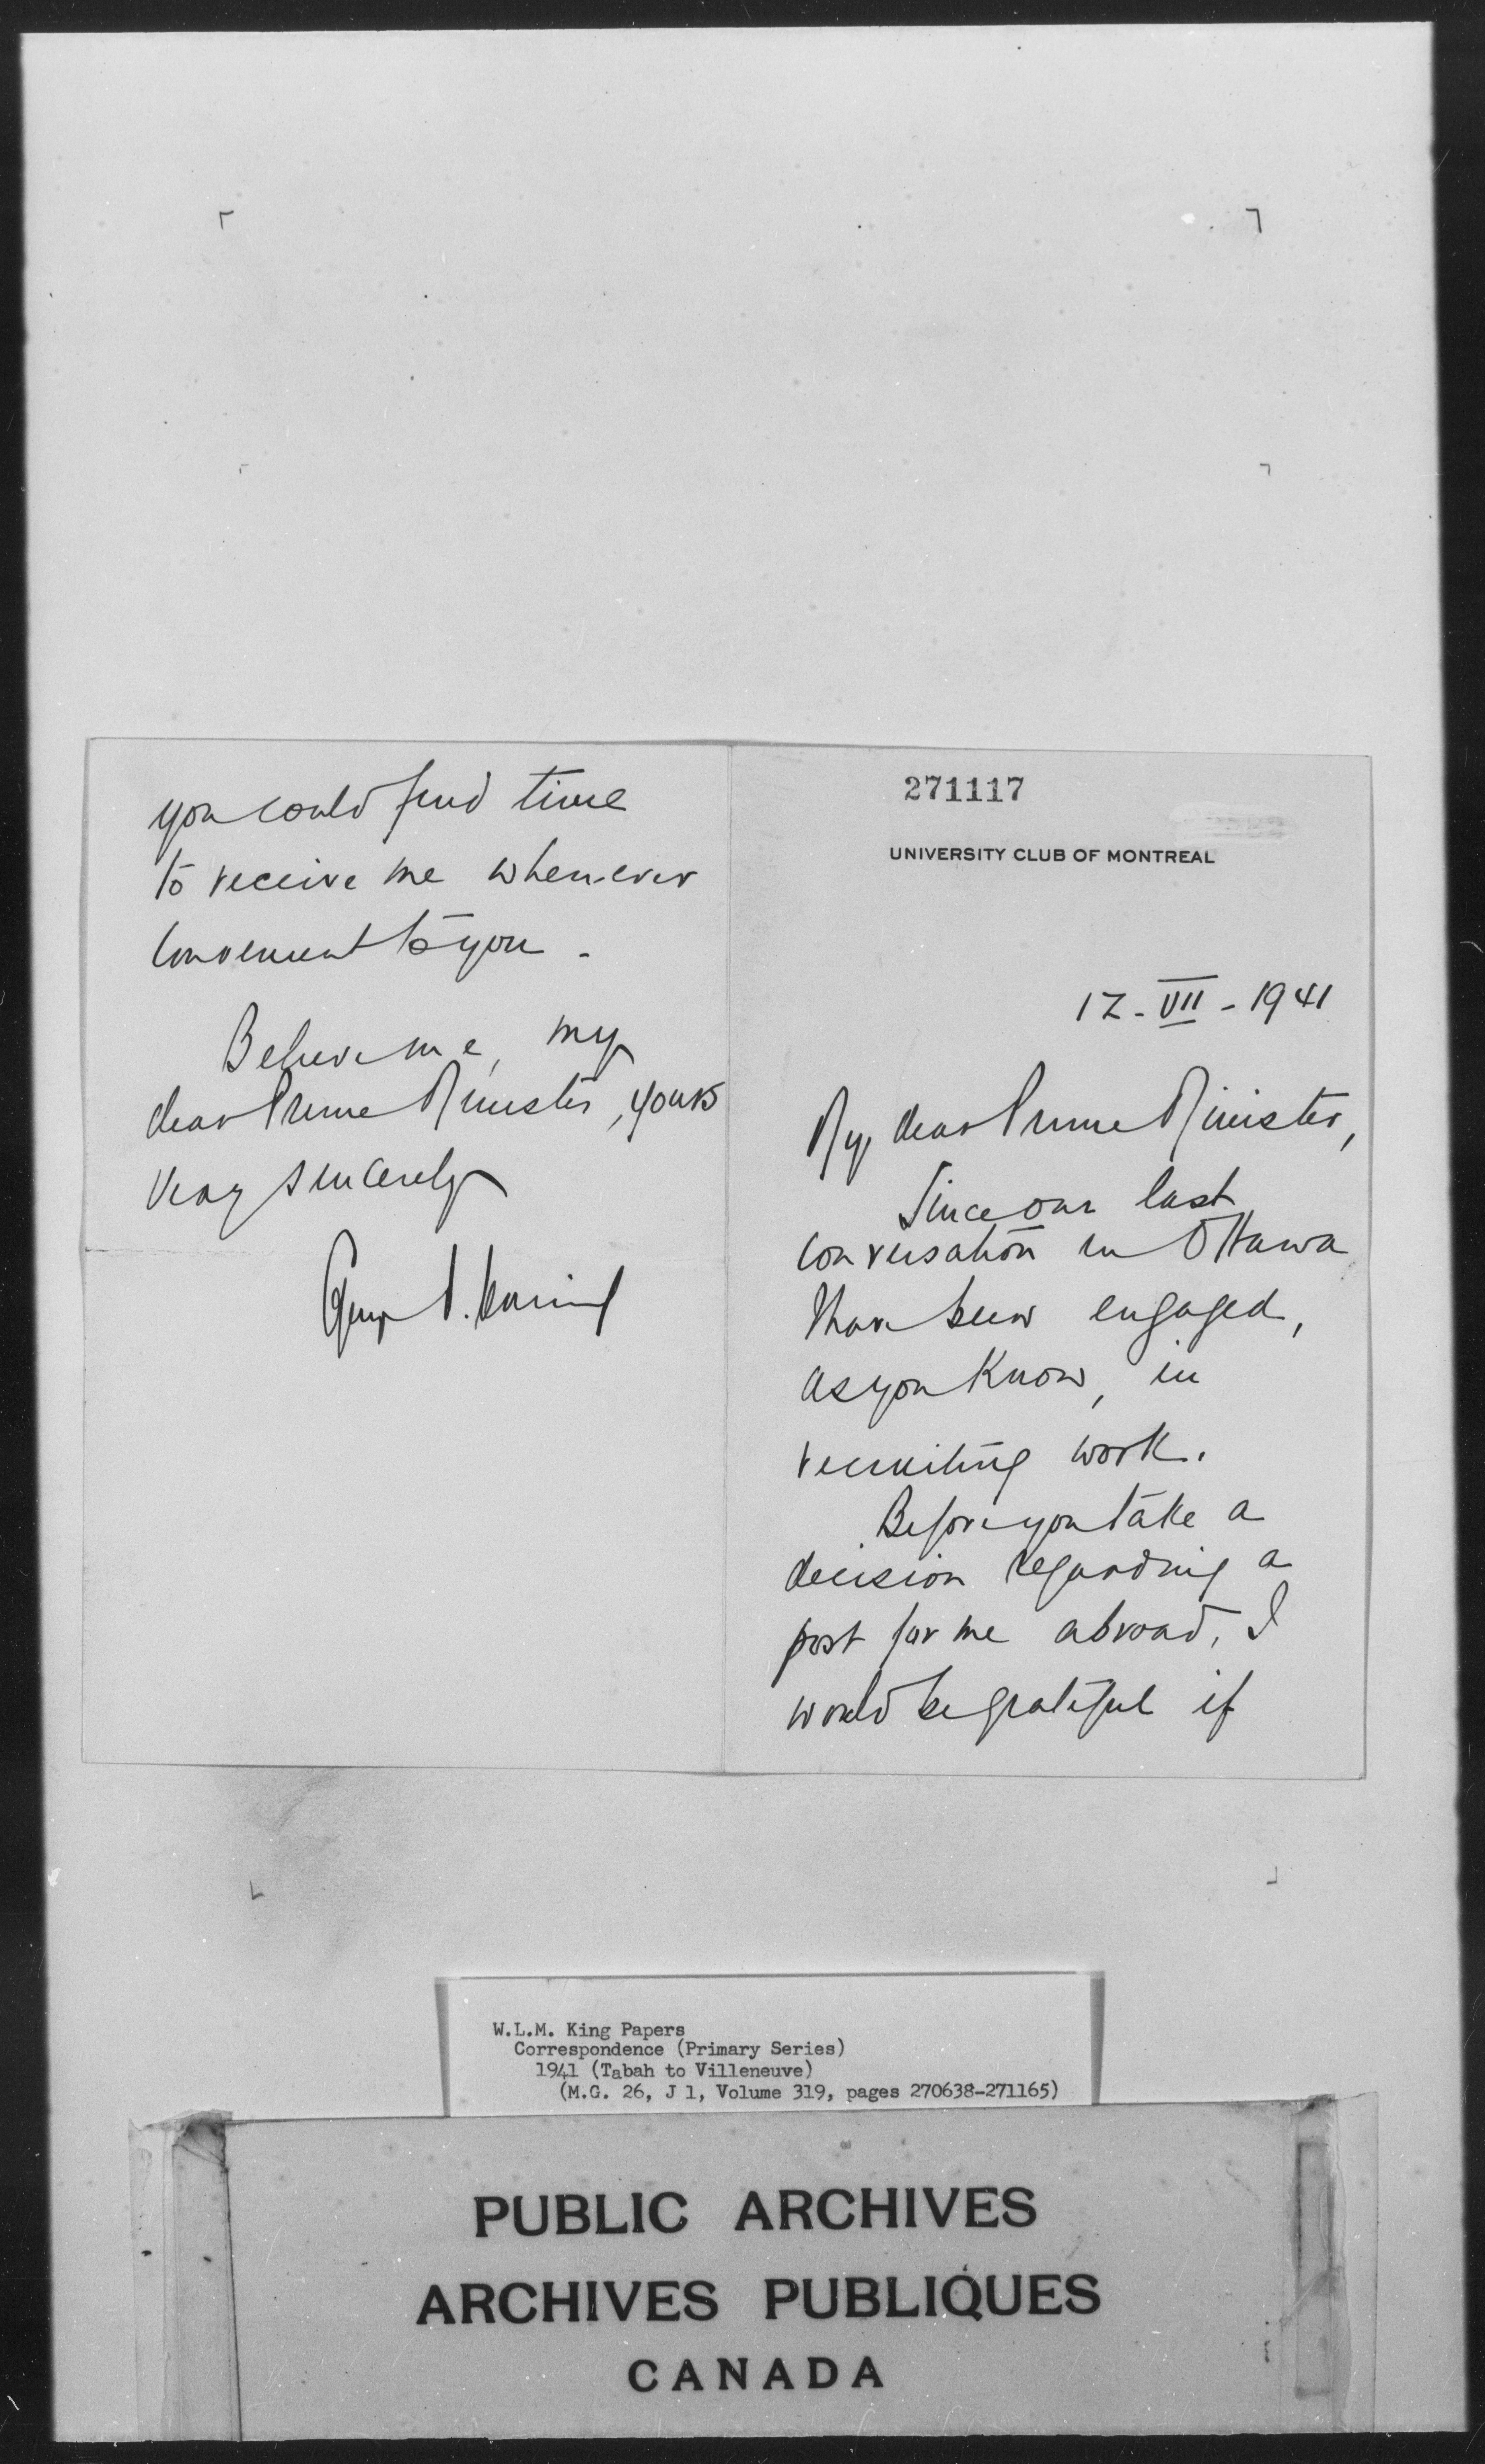 271117
UNIVERSITY CLUB OF MONTREAL
12-VII-1941
My dear Prime Minister,
Since our last
conversation in Ottawa
I have been engaged,
as you know, in
recruiting work.
Before you take a
decision regarding a
post for me abroad, I
would be grateful if
you could find time
to receive me whenever
convenient to you.
Believe me, my
dear Prime Minister, yours
very sincerely
W.L.M. King Papers
Correspondence (Primary Series)
1941 (Tabah to Villeneuve)
(M.G. 26, J 1, Volume 319, pages 270638-271165)
PUBLIC ARCHIVES
ARCHIVES PUBLIQUES
CANADA